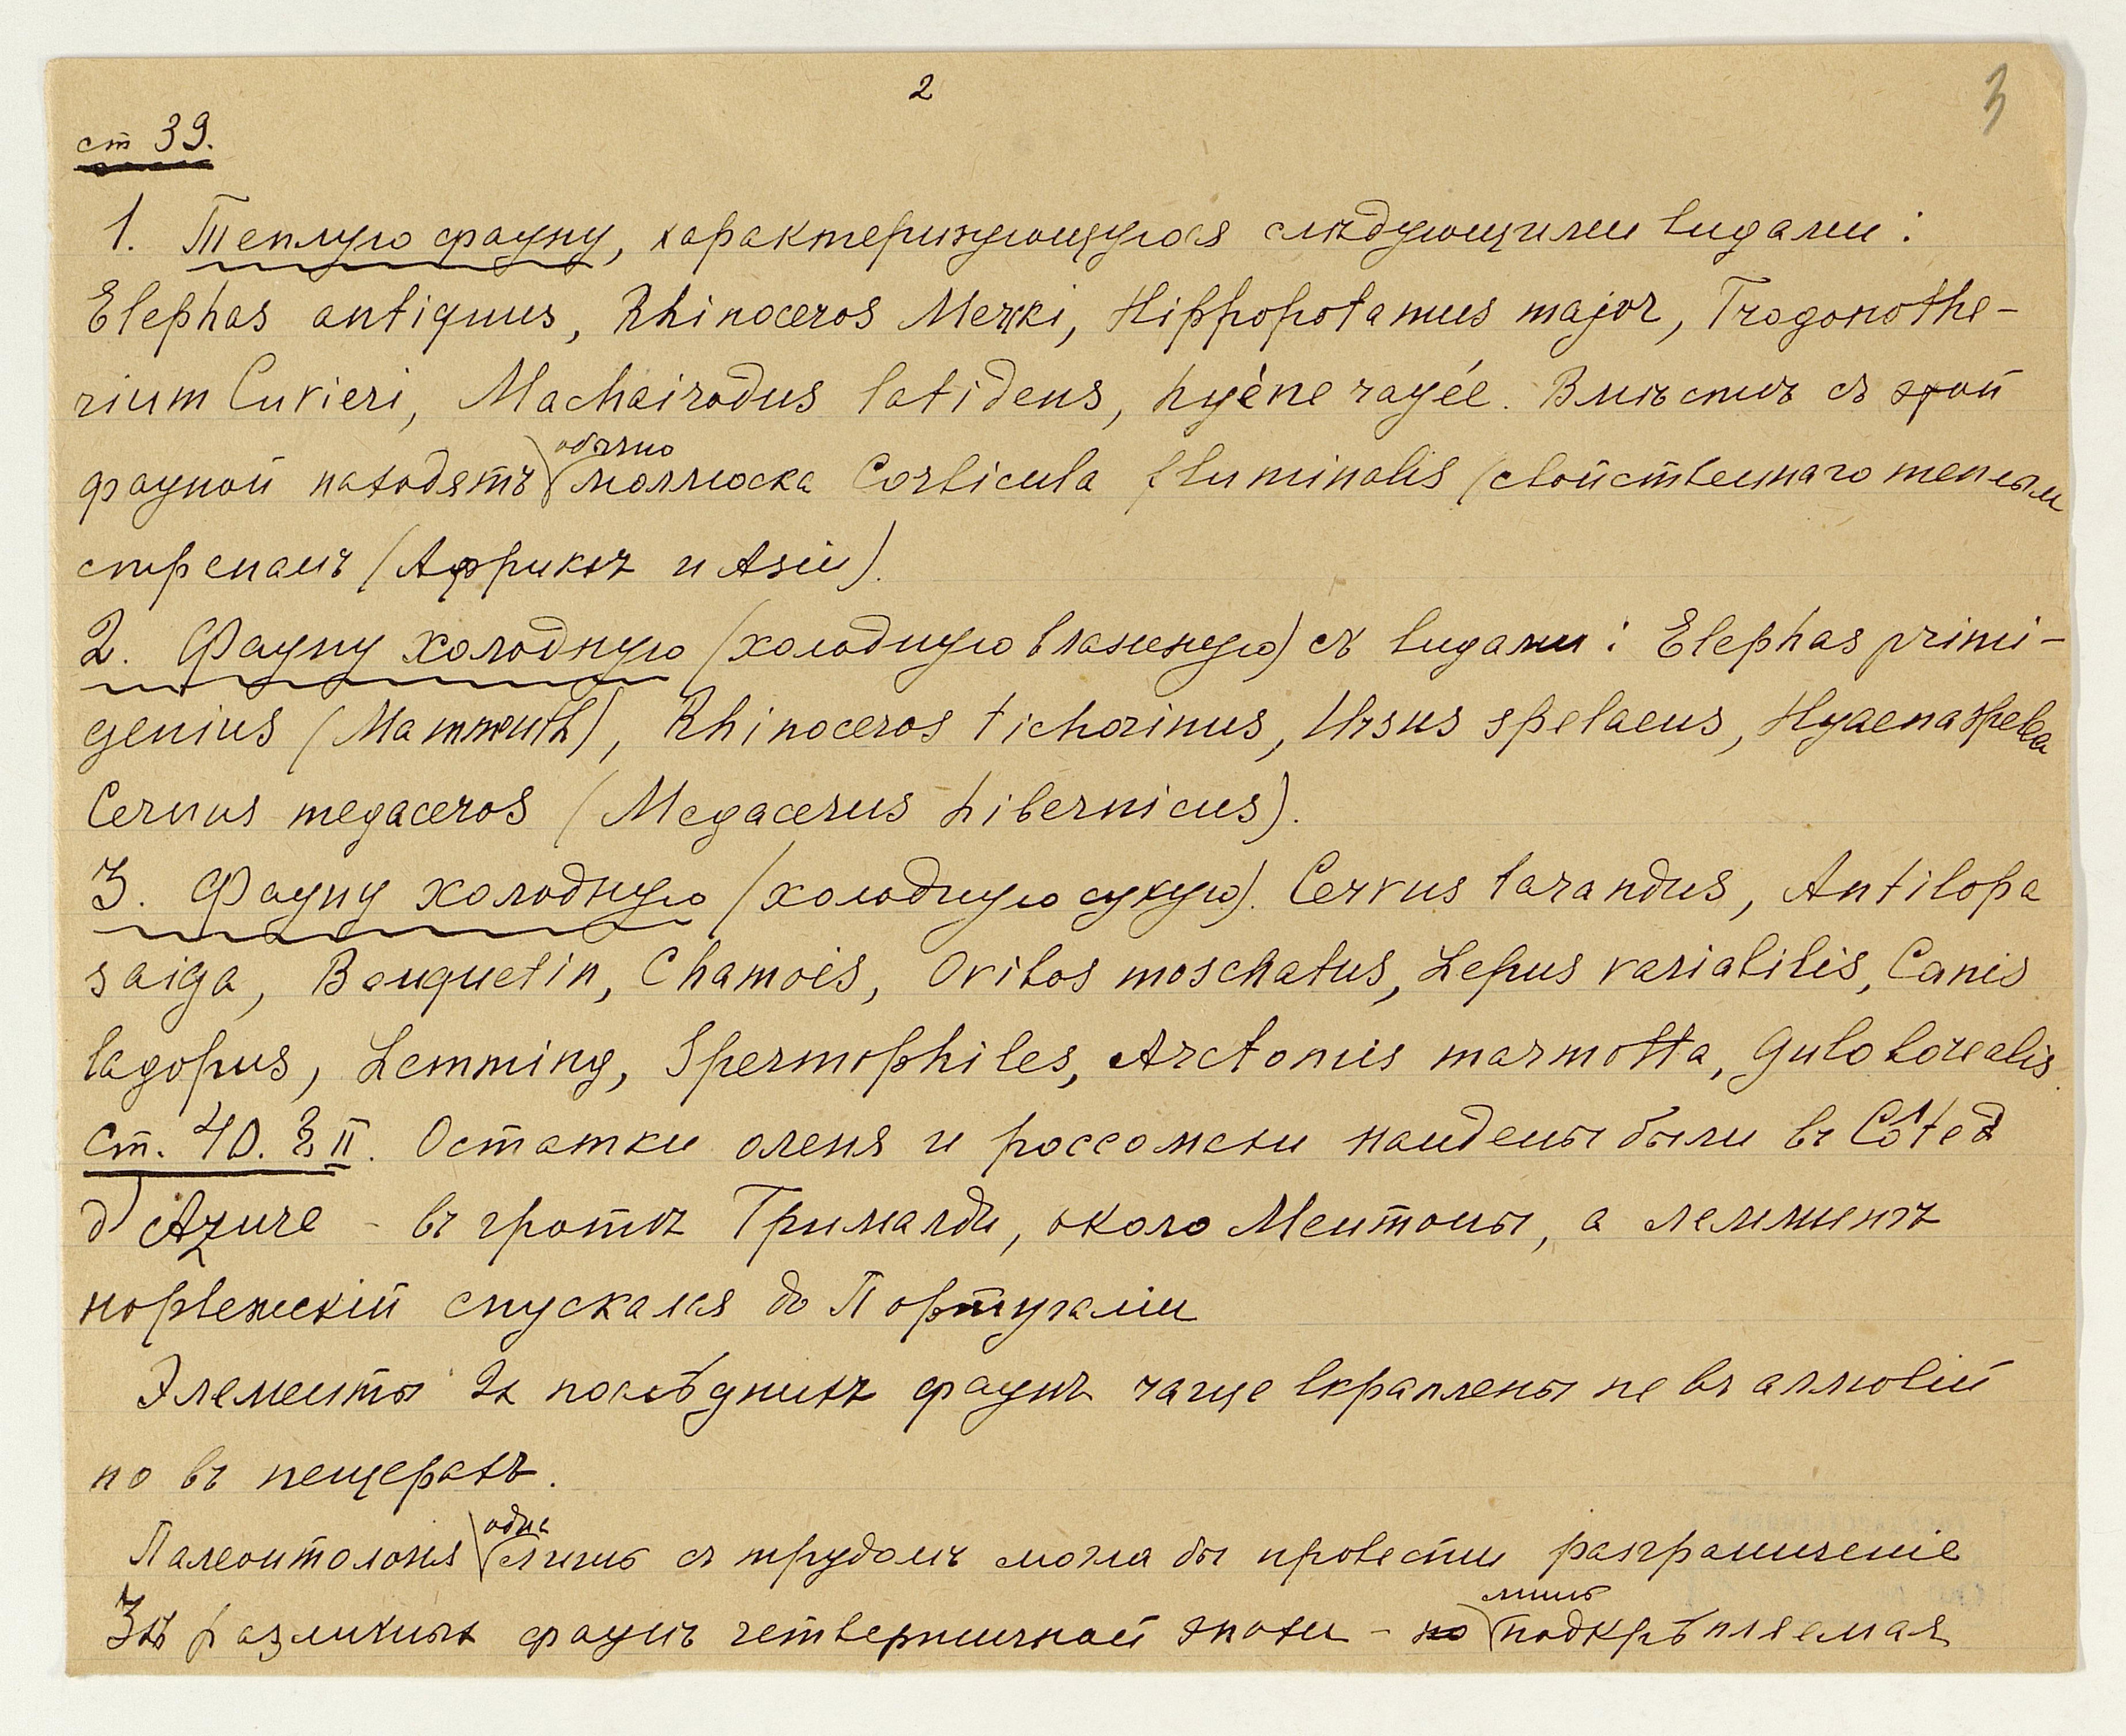 2
3
ст 39.
1. Теплую фауну, характеризующуюся слѣдующими видами:
Elephas antiquus, Rhinoceros Merki, Hippopotamus major, Trogonothe-
rium Cuvieri, Machairodus latidens, hyène rayée. Вмѣстѣ съ этой
обычно
фауной находятъ моллюска Corbicula fluminalis (свойственнаго теплым
странамъ (Африкѣ и Азіи).
2. Фауну холодную (холодную влажную) съ видами: Elephas primi-
genius (Mammuth), Rhinoceros tichorinus, Ursus spelaeus, Hyaena spelea
Cervus megaceros (Megacerus hibernicus).
3. Фауну холодную (холодную сухую). Cervus tarandus, Antilopa
saiga, Bouquetin, Chamois, Ovibos moschatus, Lepus variabilis, Canis
lagopus, Lemming, Spermophiles, Arctomis marmotta, Gulo borealis.
Ст. 40. II. Остатки оленя и россомахи найдены были въ Côte d
d'Azure - въ гротѣ Гримальди, около Ментоны, а леммингъ
норвежскій спускался до Португаліи
Элементы 2х послѣднихъ фаунъ чаще вкраплены не въ аллювій
но въ пещерахъ.
одна
Палеонтологія лишь съ трудомъ могла бы провести разграниченіе
лишь
3хъ различныхъ фаунъ четвертичной эпохи - но подкрѣпляемая